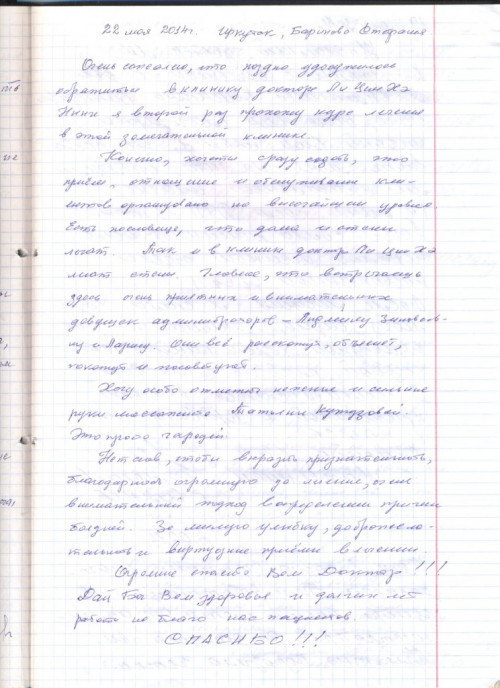 22 мая 2014г. Иркутск, Баринова
Очень сожалею, что поздно удосужилась
обратиться в клинику доктора Ли Цин Хэ
Ныне я второй раз прохожу курс лечения
в этой замечательной клинике.
Конечно, хотелось сразу сказать, что
приём, отношение и обслуживание кли-
ентов организовано на высочайшем уровне
Есть пословица, что дома и стены
лечат. Так и в клинике доктор Ли Цин Хэ
лечат стены. Главное, что встречаешь
здесь очень приятных и внимательных
девушек администраторов – Людмилу
ну и Ларису. Они всё расскажут, объяснят,
покажут и посоветуют.
Хочу особо отметить нежные и сильные
руки массажиста Татьяны Кутузовой.
Это просто чародей.
Нет слов, чтобы выразить признательность,
благодарность огромную за лечение, очень
внимательный подход в определении причин
болезней. За милую улыбку, доброжела-
тельность и виртуозные приёмы в лечении.
Огромное спасибо Вам Доктор!!!
Дай Бог Вам здоровья и долгих лет
работы на благо нас пациентов.
СПАСИБО!!!